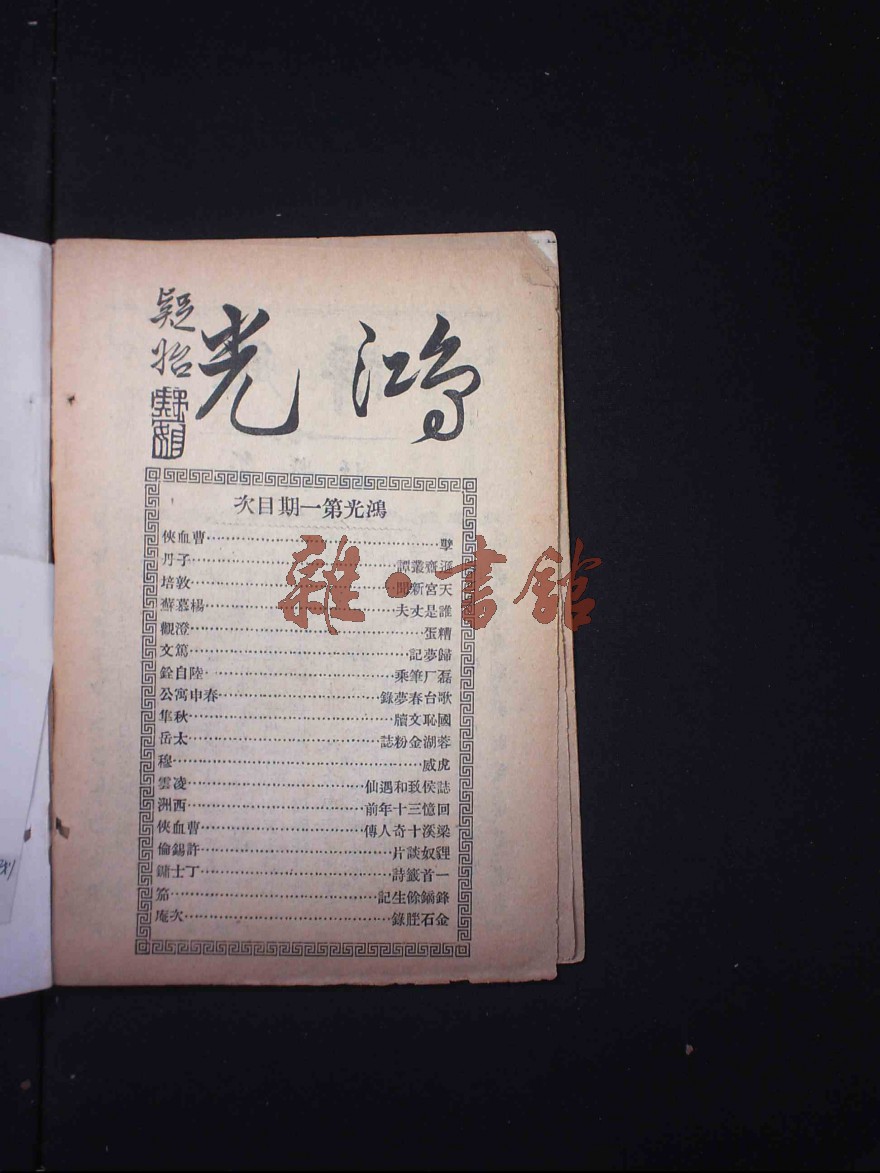 鴻光
疑始
鴻光第一期目次
孽……曹血俠
涵齋叢譚……子丹
天宮新聞……敦培
誰是丈夫……楊慕蘇
糟蛋……澄觀
歸夢記……篤文
磊厂筆乘……陸自銓
歌台春夢錄……春申寓公
國恥文牘……秋隼
蓉湖金粉誌……太岳
虎威……穆
誌侯致和遇仙……凌雲
回憶三十年前……西洲
梁溪十奇人傳……曹血俠
貍奴談片……許錫倫
一首籤詩……丁士鏞
鋒鏑餘生記……笳
金石脞錄……次庵
雜·書館